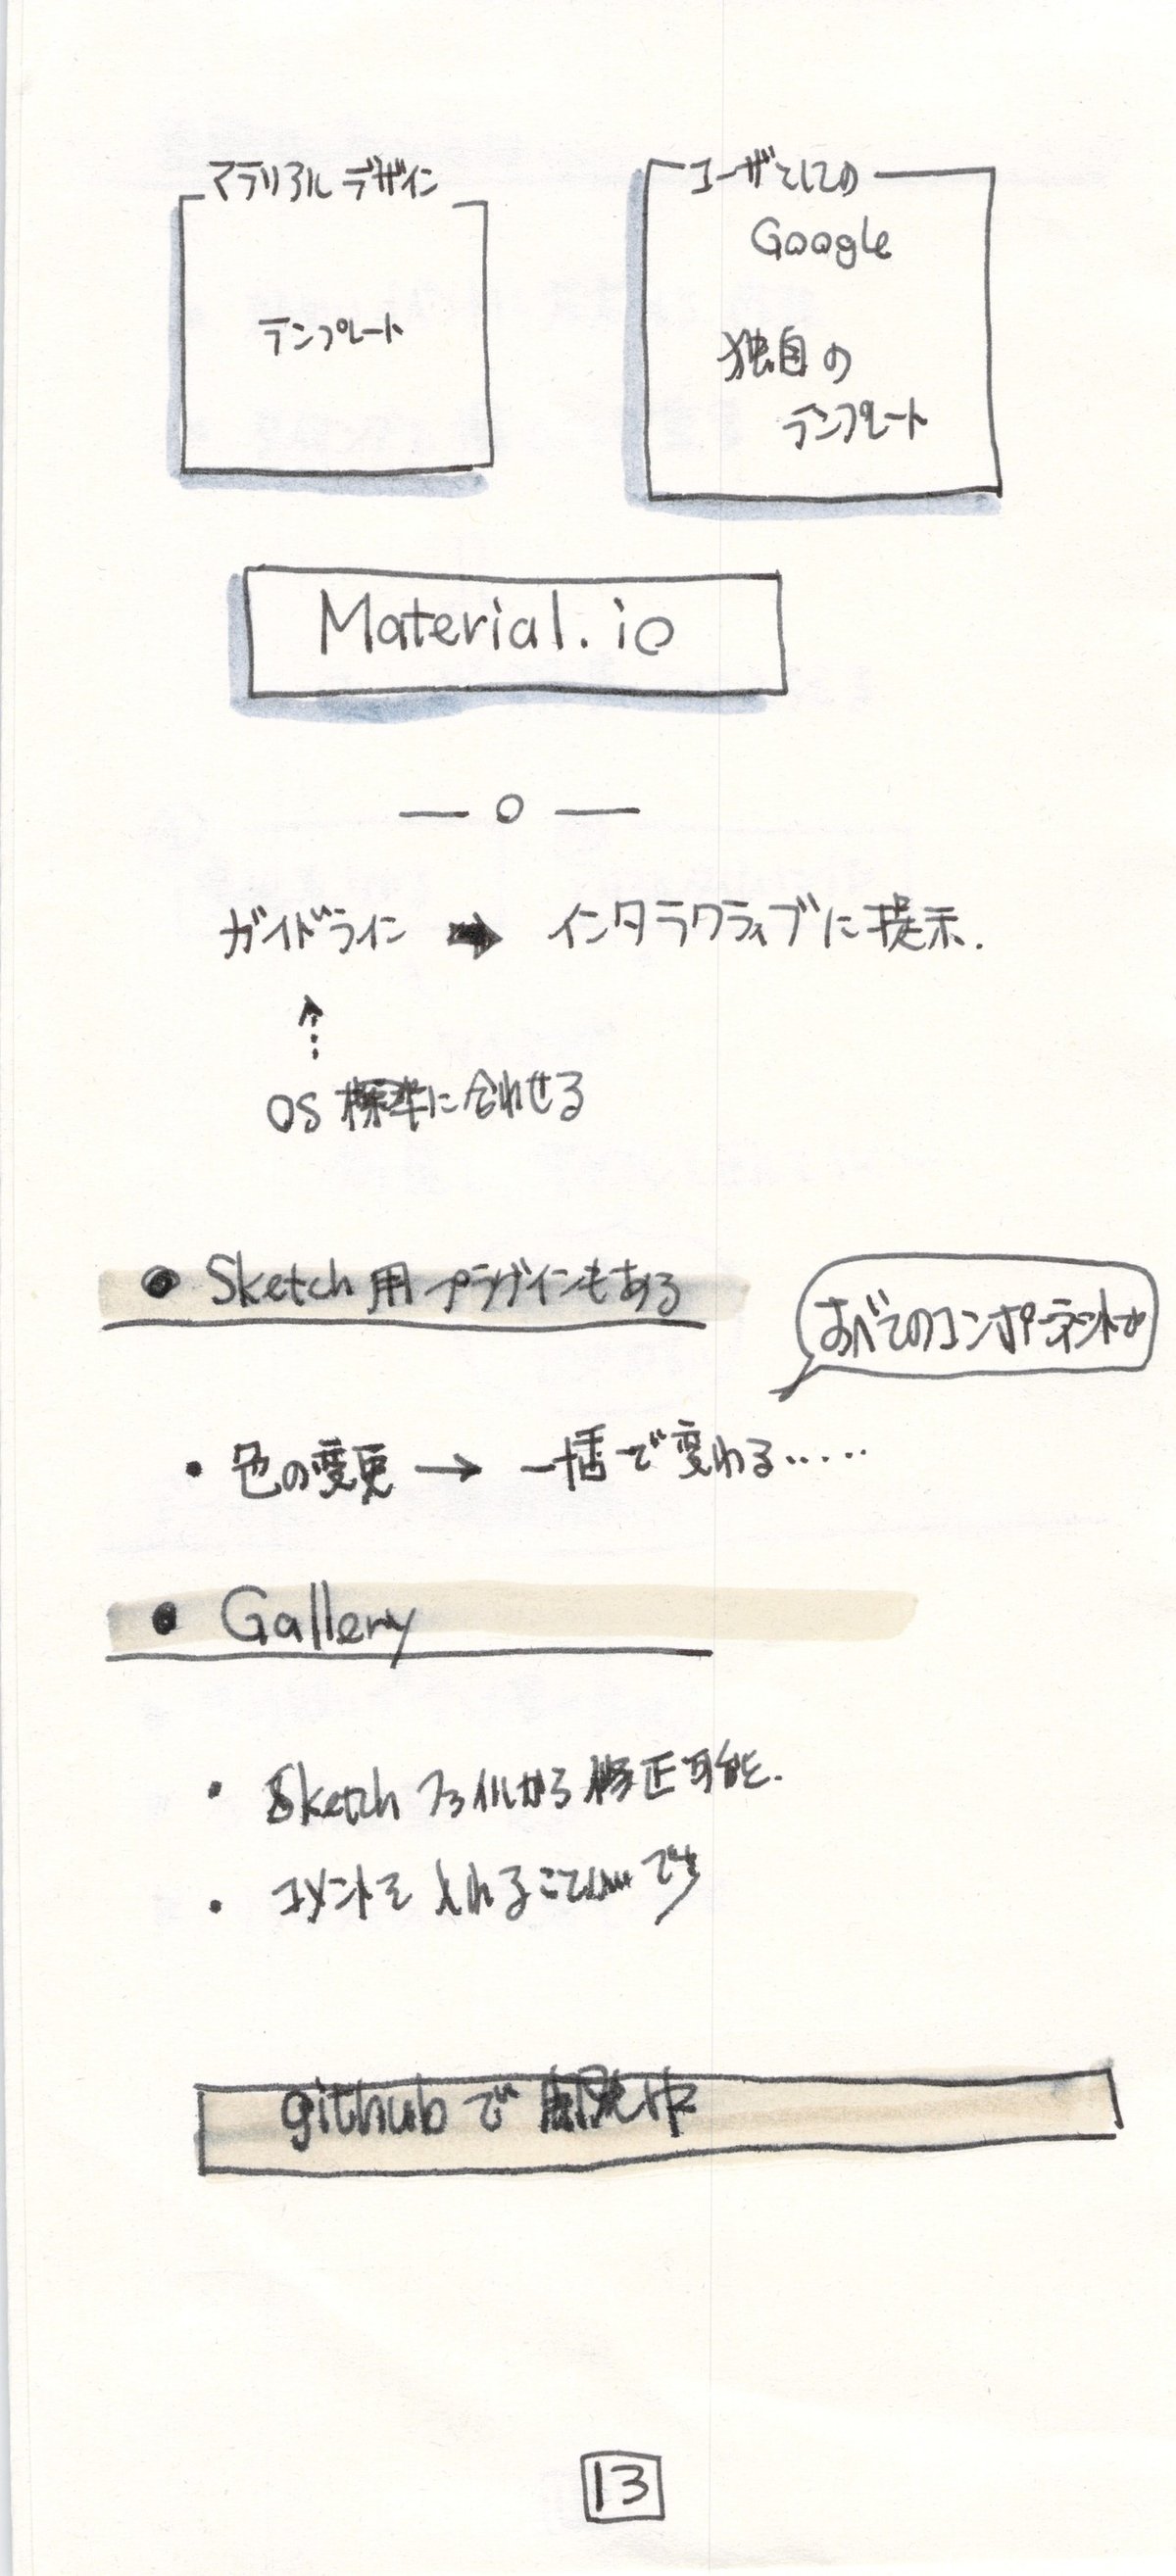 マテリアルデザイン
テンプレート
ユーザとしての
Google
独自の
テンプレート
Material.io
ガイドライン ➡ インタラクティブに提示.
↑
OS 標準に合わせる
● Sketch 用プラグインもある
すべてのコンポーネントが
・色の変更 → 一括で変わる……
● Gallery
・Sketch ファイルから修正可能.
・コメントを入れること
github で
13